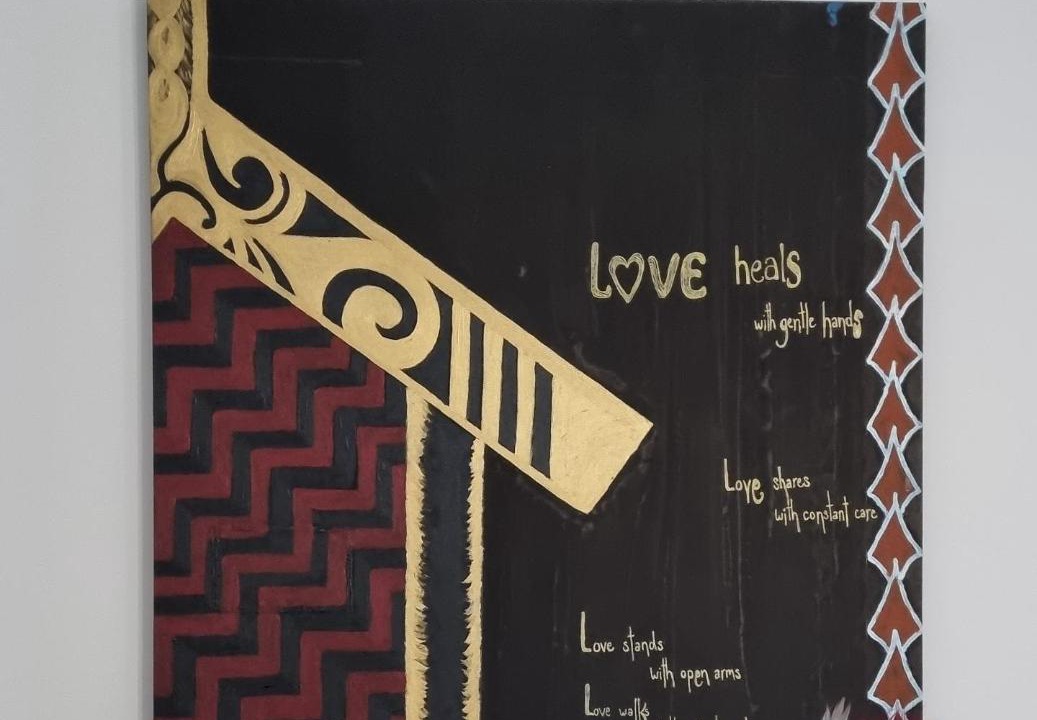 LOVE heals
with gentle hands
Love shares
with constant care
Love stands
with open arms
Love walks